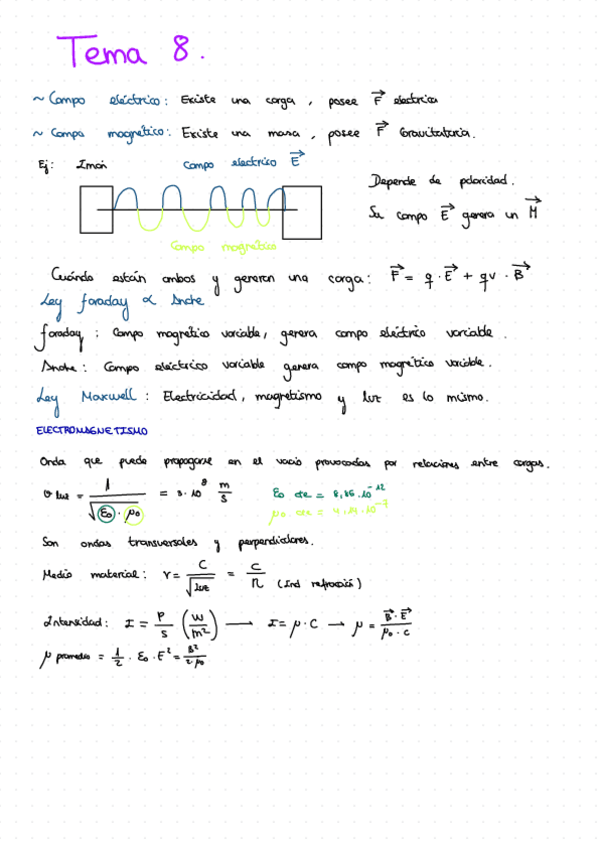 Tema 8.
~ Campo eléctrico: Existe una carga, posee F electrica
~ Campo magnético: Existe una masa, posee F Gravitatoria.
Ej: Iman Campo electrico E
Depende de polaridad.
Su campo E genera un M
Campo magnetico
Cuándo están ambos y generan una carga: F = q · E + qv · B
Ley faraday &
faraday: Campo magnético variable, genera campo eléctrico variable.
Campo eléctrico variable genera campo magnético variable.
Ley Maxwell: Electricidad, magnetismo y luz es lo mismo.
ELECTROMAGNETISMO
Onda que puede propagarse en el vacio provocadas por relaciones entre cargas.
v luz = 1 / √(ε0 · μ0) = 3 · 10^8 m/s ε0 cte = 8,85 · 10^-12
μ0 cte = 4 · π · 10^-7
Son ondas transversales y perpendiculares.
Medio material: v = C / √ = C / n (Ind refracción)
Intensidad: I = P/S (W/m²) → I = μ · C → μ = B · E / μ0 · c
μ promedio = 1/2 · ε0 · E² = B² / 2 · μ0